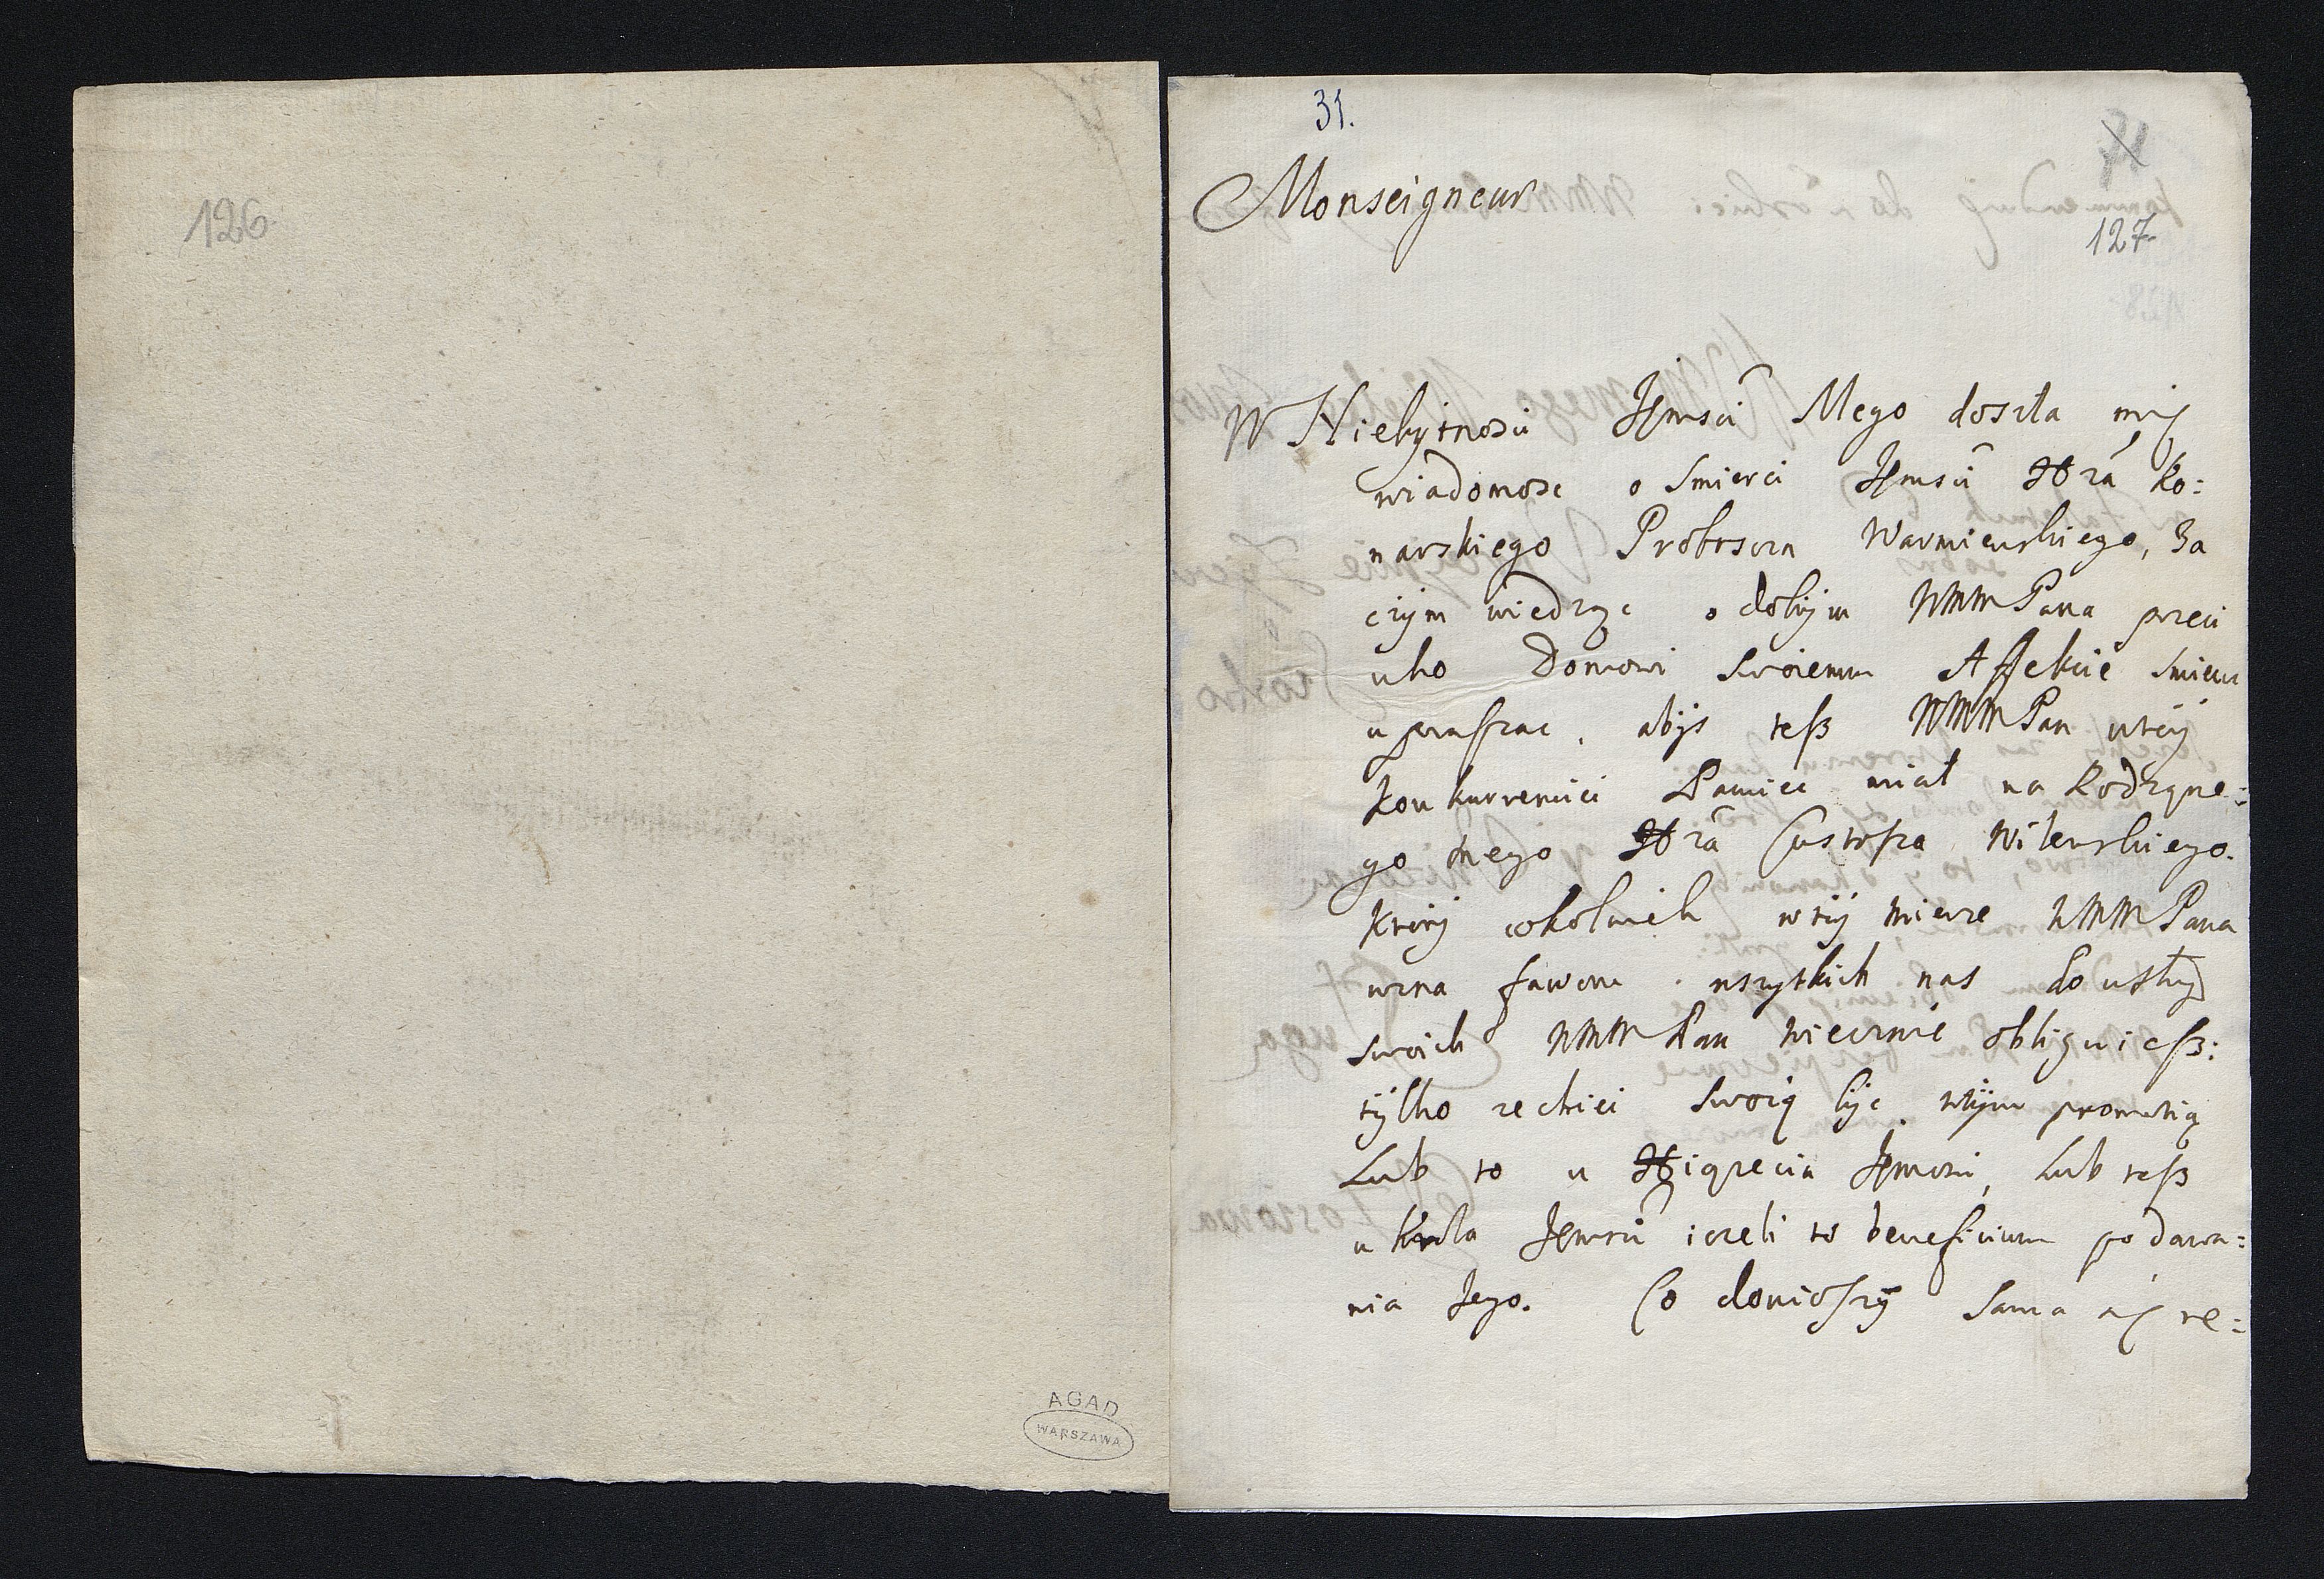 126
AGAD
WARSZAWA
31.
127
Monseigneur
W Niebytnosci Jemsci Mego doszła mię
wiadomosc o Smierci Jemsci Xza Ko:
narskiego Proboscza Warmienskiego, Za
czym wiedząc o dobrym WMM Pana przeci
wko Domowi Swoiemu Affekcie Smiem
upraszac, abys tesz WMM Pan wtey
Konkurrenciei Pamiec miał na Rodzone:
go mego Xza Custosza Wilenskiego.
Ktory cokolwiek wtey mierze WMM Pana
uzna faworu wszytkich nas do usług
swoich WMM Pan wiecznie obliguiesz:
tylko zechciei Swoią byc wtym promotią
Lub to u Xiązecia Jemosci, Lub tesz
u Krola Jemsci iezeli to beneficium podawa:
nia Jego. Co donioszy Sama się re: